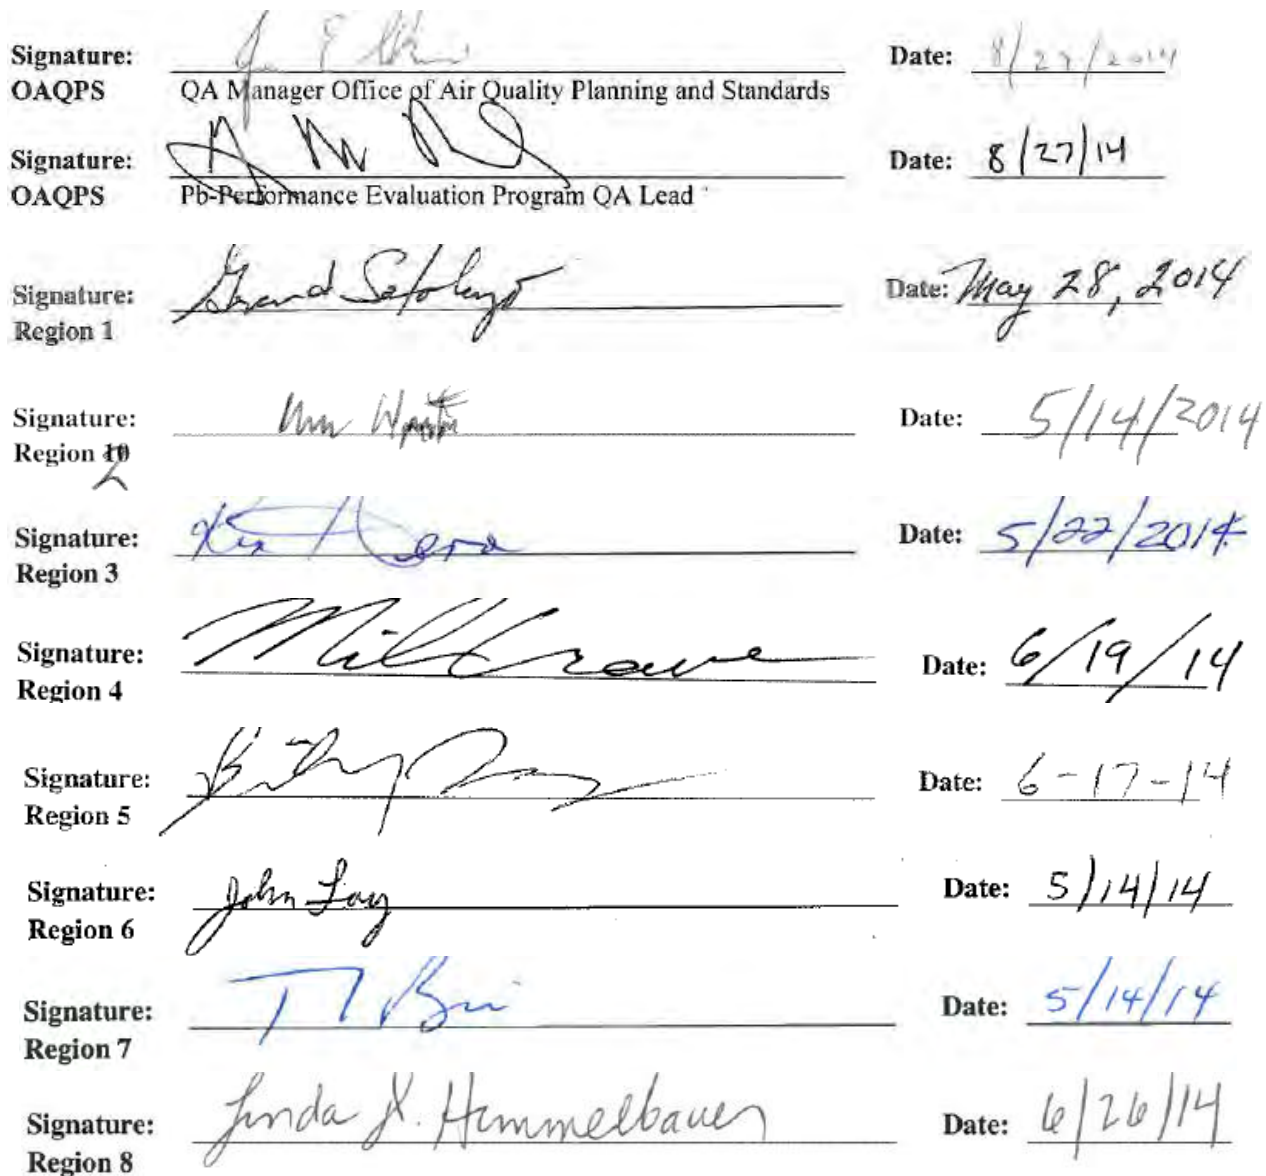 Signature: Date: 8/27/2014
OAQPS QA Manager Office of Air Quality Planning and Standards
Signature: Date: 8/27/14
OAQPS Pb-Performance Evaluation Program QA Lead
Signature: Date: May 28, 2014
Region 1
Signature: Date: 5/14/2014
Region 10
2
Signature: Date: 5/22/2014
Region 3
Signature: Date: 6/19/14
Region 4
Signature: Date: 6-17-14
Region 5
Signature: John Lay Date: 5/14/14
Region 6
Signature: Date: 5/14/14
Region 7
Signature: Linda X. Himmelbauer Date: 6/26/14
Region 8